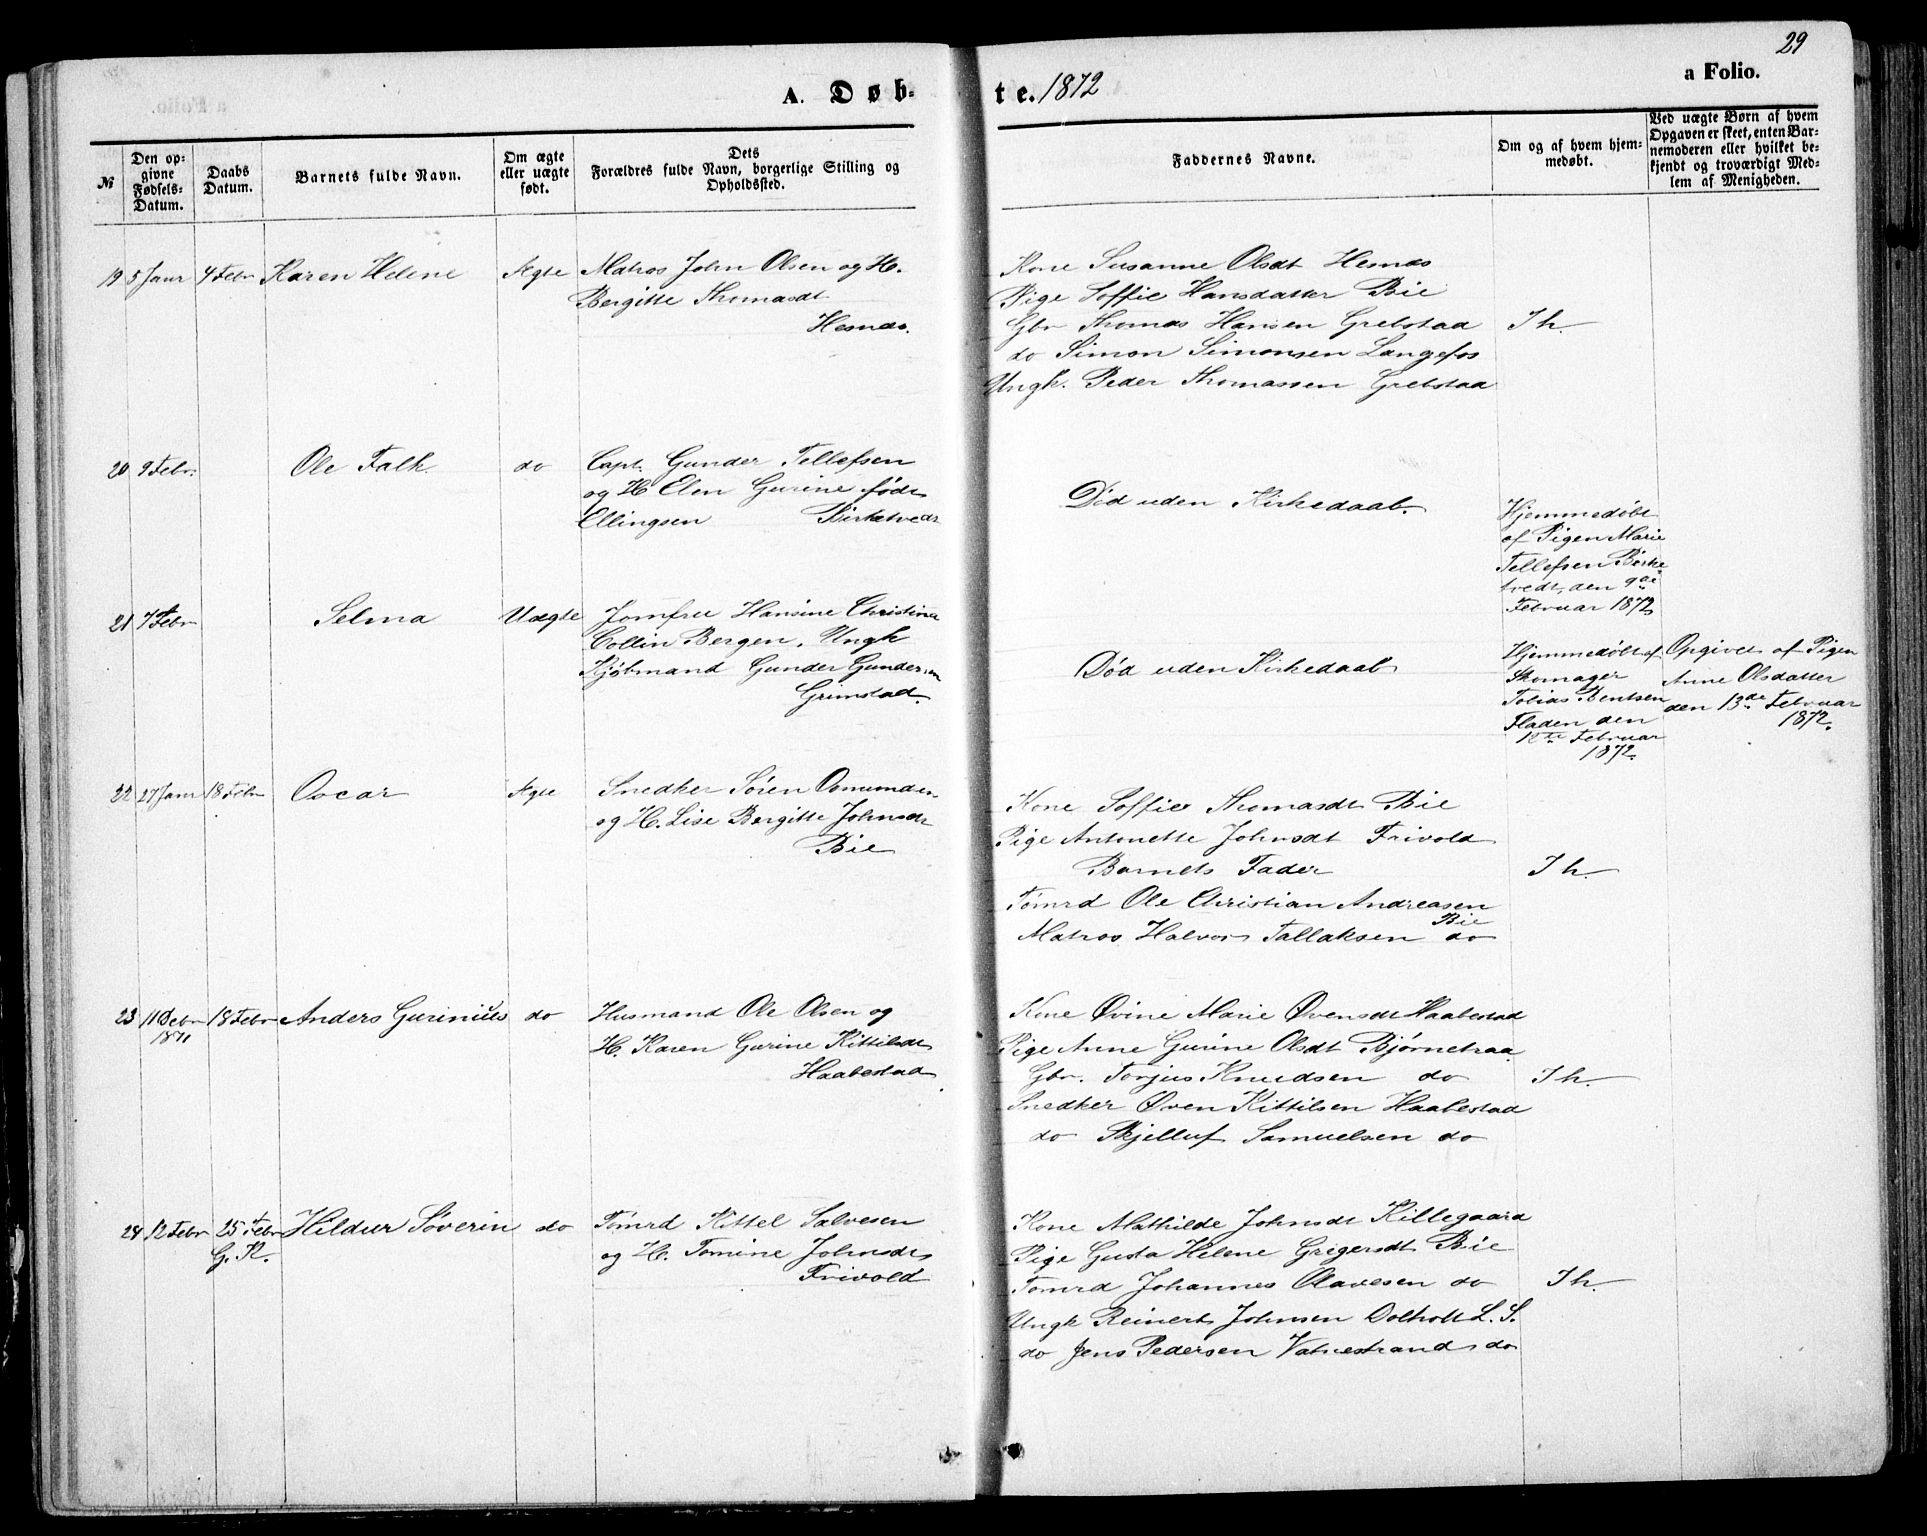 29
A. Døb-
te. 1872
a Folio.
№
Den op-
givne
Fødsels-
Datum.
Daabs
Datum.
Barnets fulde Navn.
Om ægte
eller uægte
født.
Dets
Forældres fulde Navn, borgerlige Stilling og
Opholdssted.
Faddernes Navne.
Om og af hvem hjem-
medøbt.
Ved uægte Børn af hvem
Opgaven er skeet, enten Bar-
nemoderen eller hvilket be-
kjendt og troværdigt Med-
lem af Menigheden.
19 5 Janr 4 Febr Karen Helene Ægte Matros John Olsen og H.
Bergitte Thomasdt
Hesnæs.
Kone Susanne Olsdt Hesnæs
Pige Soffie Hansdatter Bie
Gbr Thomas Hansen Grefstad
do Simon Simonsen Langefos
Ungk. Peder Thomassen Grefstad
Ih.
20 9 Febr. Ole Falk do Capt. Gunder Tellefsen
og H Elen Gurine født
Ellingsen Birketvedt
Død uden Kirkedaab.
Hjemmedøbt
af Pigen Marie
Tellefsen Birke
tvedt, den 9de
Februar 1872
21 7 Febr Selma Uægte Jomfru Hansine Christine
Collin Bergen, Ungk
Kjøbmand Gunder Gundersen
Grimstad.
Død uden Kirkedaab
Hjemmedøbt af
Skomager
Tobias Bentsen
Fladen den
12te Februar
1872.
Opgivet af Pigen
Anne Olsdatter
den 13de Februar
1872.
22 27 Janr 18 Febr Oscar Ægte Snedker Sören Osmundsen
og H. Lise Bergitte Johnsdt
Bie
Kone Soffie Thomasdt Bie
Pige Antonette Johnsdt Frivold
Barnets Fader
Tømrd Ole Christian Andreasen
Bie
Matros Halvor Tallaksen do
Ih.
23 11 Debr 18 Febr Anders Gurinius do Husmand Ole Olsen og
1871
H. Karen Gurine Kittilsdt
Haabestad
Kone Øvine Marie Øvensdt Haabestad
Pige Anne Gurine Olsdt Bjørnetraa
Gbr. Torjus Knudsen do
Snedker Øven Kittilsen Haabestad
do Skjelluf Samuelsen do
Ih.
24 12 Febr 25 Febr Hildur Söverin do Tømrd Kittel Salvesen
G. K.
og H. Tomine Johnsdt
Frivold
Kone Mathilde Johnsdt Killegaard
Pige Gusta Helene Gregersdt Bie
Tømrd Johannes Olavesen do
Ungk Reinert Johnsen Dolholt L. S.
do Jens Pedersen Vatnestrand do
Ih.